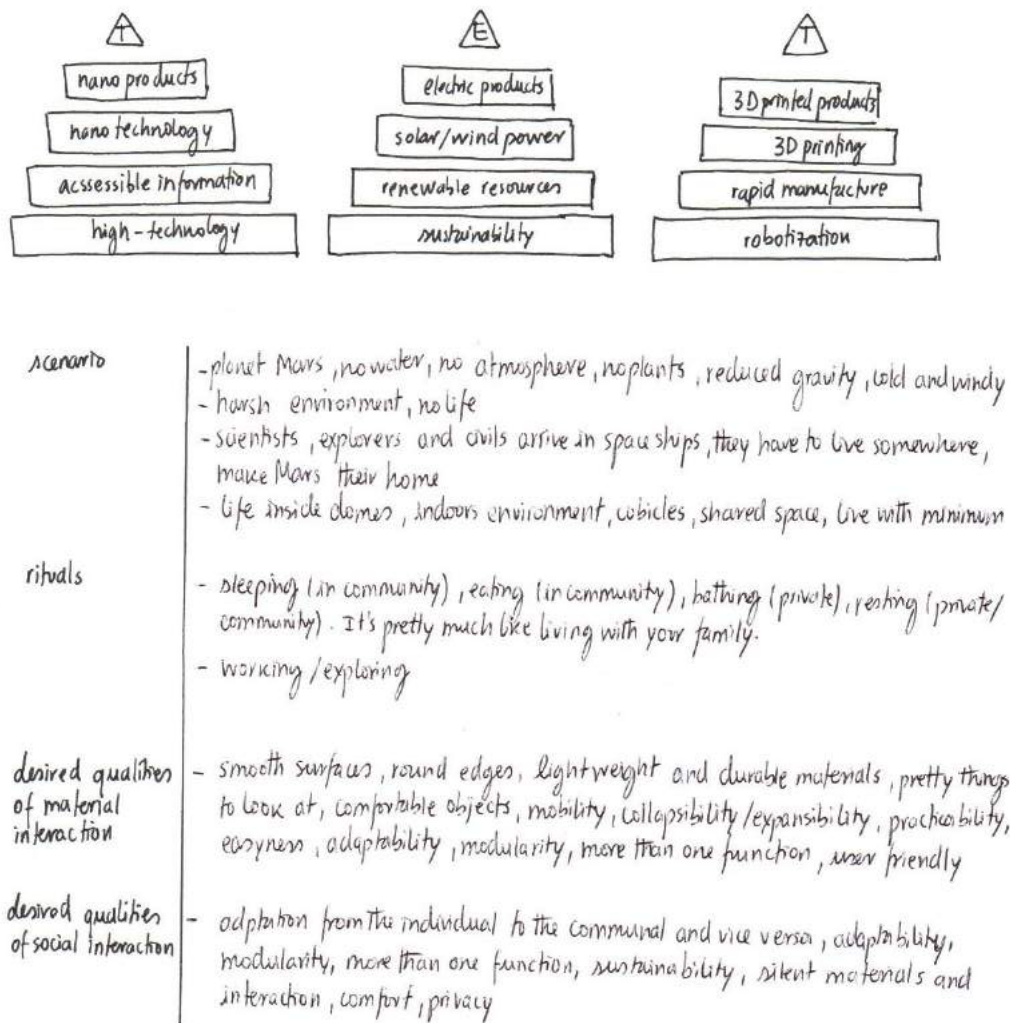 T
nano products
nano technology
acssessible information
high-technology
E
electric products
solar/wind power
renewable resources
sustainability
T
3D printed products
3D printing
rapid manufacture
robotization
scenario
- planet Mars, no water, no atmosphere, no plants, reduced gravity, cold and windy
- harsh environment, no life
- scientists, explorers and civils arrive in space ships, they have to live somewhere,
make Mars their home
- life inside domes, indoors environment, cubicles, shared space, live with minimum
rituals
- sleeping (in community), eating (in community), bathing (private), resting (private/
community). It's pretty much like living with your family.
- working/exploring
desired qualities
of material
interaction
- smooth surfaces, round edges, lightweight and durable materials, pretty things
to look at, comfortable objects, mobility, collapsibility/expansibility, practicability,
easyness, adaptability, modularity, more than one function, user friendly
desired qualities
of social interaction
- adptation from the individual to the communal and vice versa, adaptability,
modularity, more than one function, sustainability, silent materials and
interaction, comfort, privacy